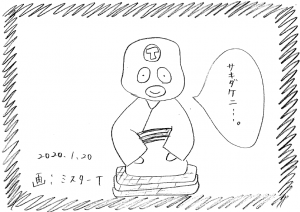 T
サキダケニ…。
2020.1.20
画:ミスターT